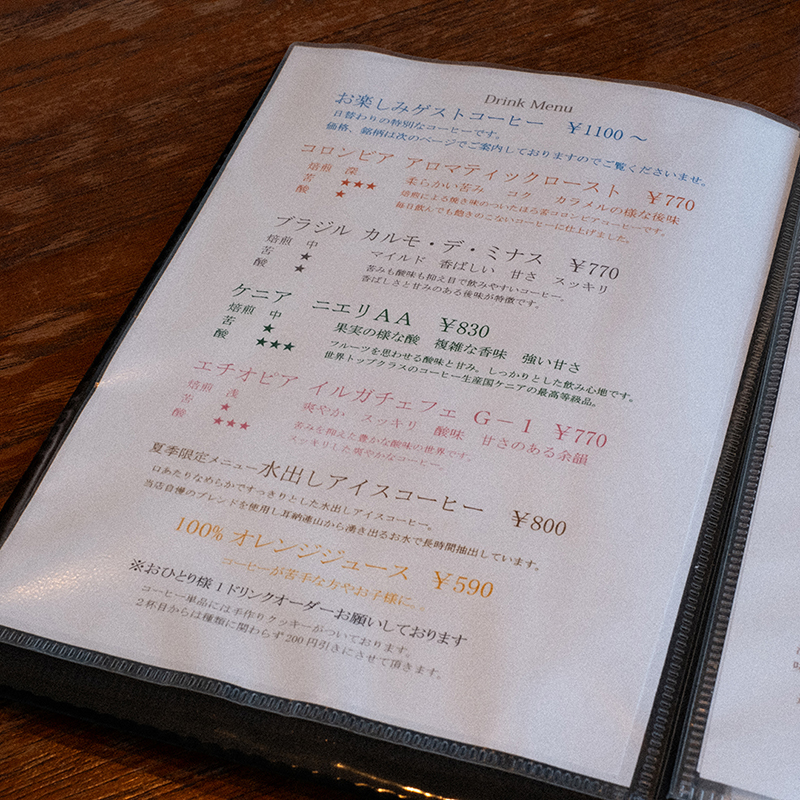 Drink Menu
お楽しみゲストコーヒー ￥1100～
日替わりの特別なコーヒーです。
価格、銘柄は次のページでご案内しておりますのでご覧くださいませ。
コロンビア アロマティックロースト ￥770
焙煎 深 柔らかい苦み コク カラメルの様な後味
苦 ★★★ 焙煎による焼き味のついたほろ苦コロンビアコーヒーです。
酸 ★ 毎日飲んでも飽きのこないコーヒーに仕上げました。
ブラジル カルモ・デ・ミナス ￥770
焙煎 中 マイルド 香ばしい 甘さ スッキリ
苦 ★ 苦みも酸味も抑え目で飲みやすいコーヒー。
酸 ★ 香ばしさと甘みのある後味が特徴です。
ケニア ニエリAA ￥830
焙煎 中 果実の様な酸 複雑な香味 強い甘さ
苦 ★ フルーツを思わせる酸味と甘み。しっかりとした飲み心地です。
酸 ★★★ 世界トップクラスのコーヒー生産国ケニアの最高等級品。
エチオピア イルガチェフェ G－1 ￥770
焙煎 浅 爽やか スッキリ 酸味 甘さのある余韻
苦 ★ 苦みを抑えた豊かな酸味の世界です。
酸 ★★★ スッキリした爽やかなコーヒー。
夏季限定メニュー水出しアイスコーヒー ￥800
口あたりなめらかですっきりとした水出しアイスコーヒー。
当店自慢のブレンドを使用し耳納連山から湧き出るお水で長時間抽出しています。
100% オレンジジュース ￥590
コーヒーが苦手な方やお子様に。。
※おひとり様1ドリンクオーダーお願いしております
コーヒー単品には手作りクッキーがついております。
2杯目からは種類に関わらず200円引きにさせて頂きます。